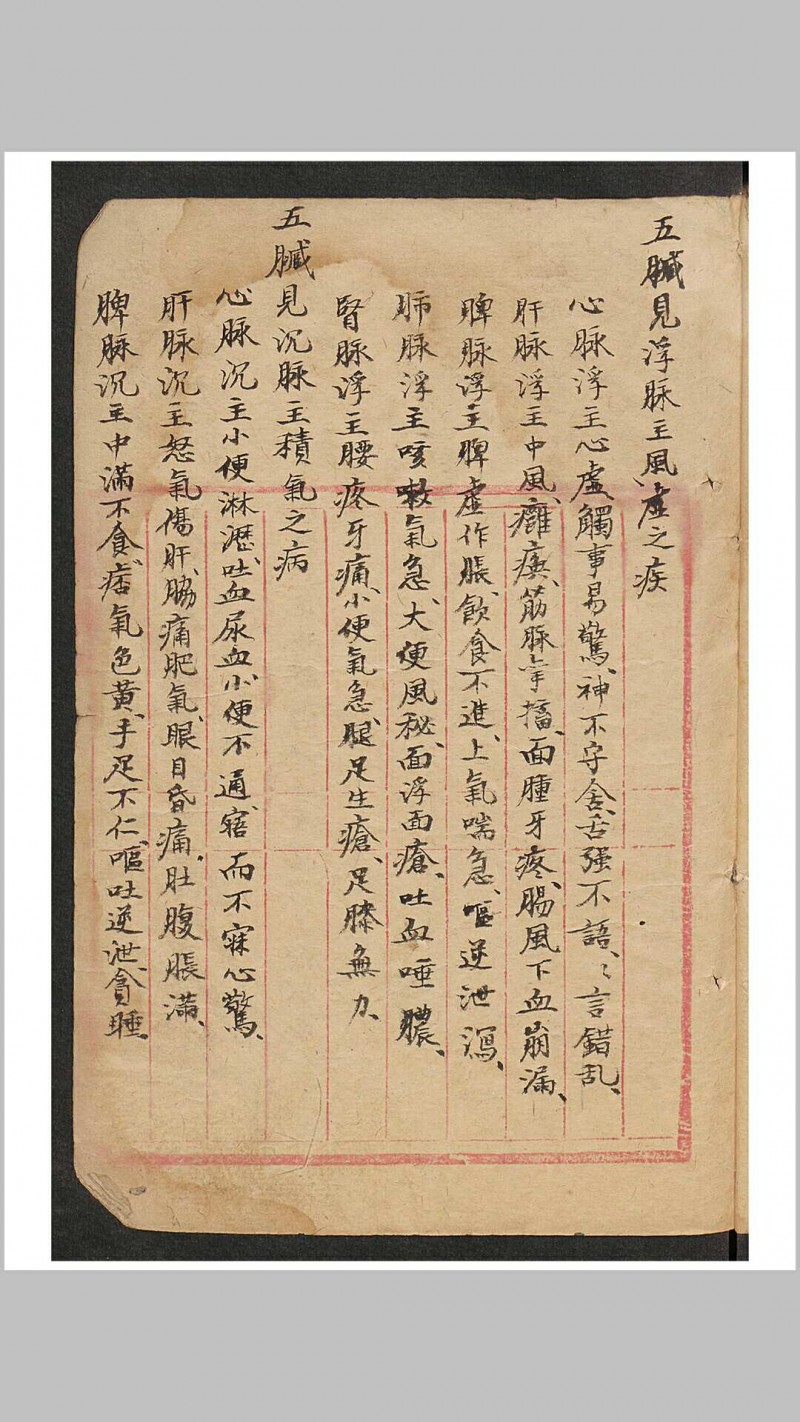 五臓見浮脉主風虚之疾
心脉浮主心虚、觸事易驚、神不守舍、舌强不語、〻言錯乱、
肝脉浮主中風、癱瘓、筋脉牽搐、面腫牙疼、腸風下血崩漏、
脾脉浮主脾虚作脹、飲食不進、上氣喘急、嘔逆泄瀉、
肺脉浮主咳嗽氣急、大便風秘、面浮面瘡、吐血唾膿、
腎脉浮主腰疼牙痛、小便氣急、腿足生瘡、足膝無力、
五臓見沉脉主積氣之病
心脉沉主小便淋瀝、吐血尿血、小便不通、寤而不寐心驚、
肝脉沉主怒氣傷肝、脇痛肥氣、眼目昏痛、肚腹脹滿、
脾脉沉主中滿不食、痞氣色黃、手足不仁、嘔吐逆泄、貪睡、